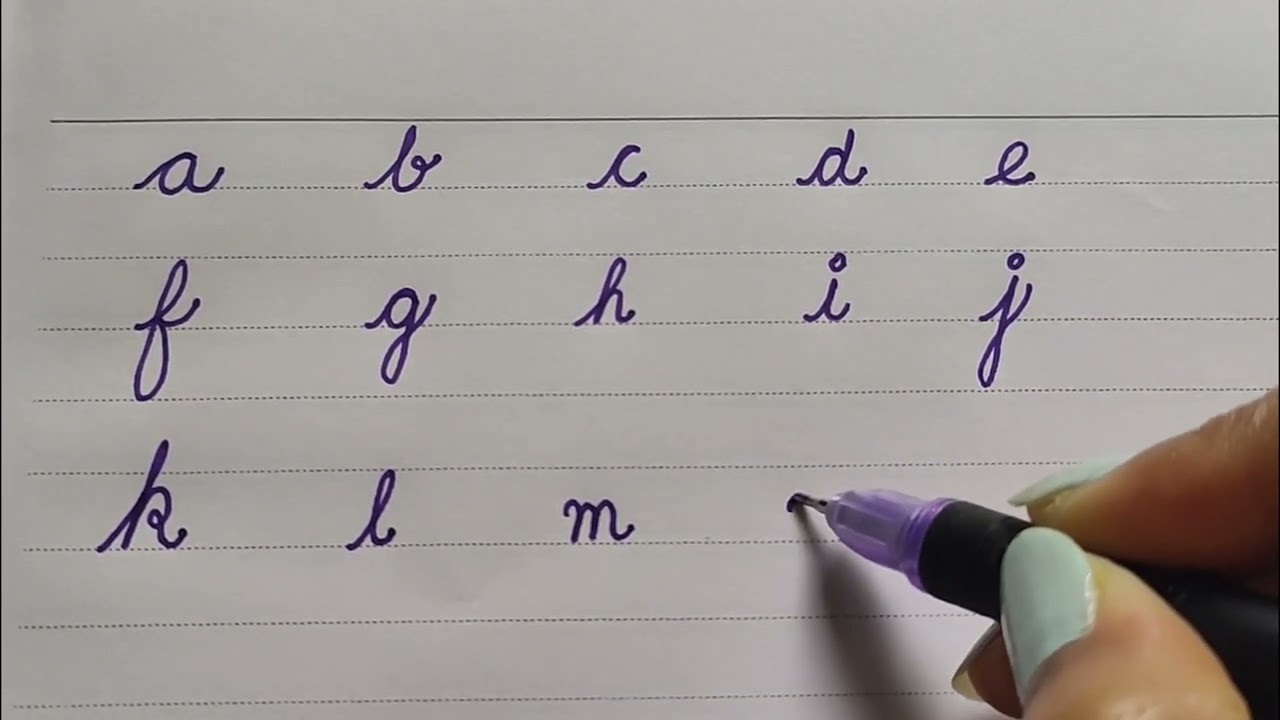 a b c d e
f g h i j
k l m